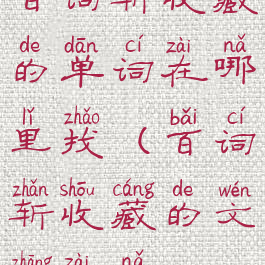 百词斩收藏
de dān cí zài nǎ
的单词在哪
lǐ zhǎo bǎi cí
里找（百词
zhǎn shōu cáng de wén
斩收藏的文
zhāng zài nǎ